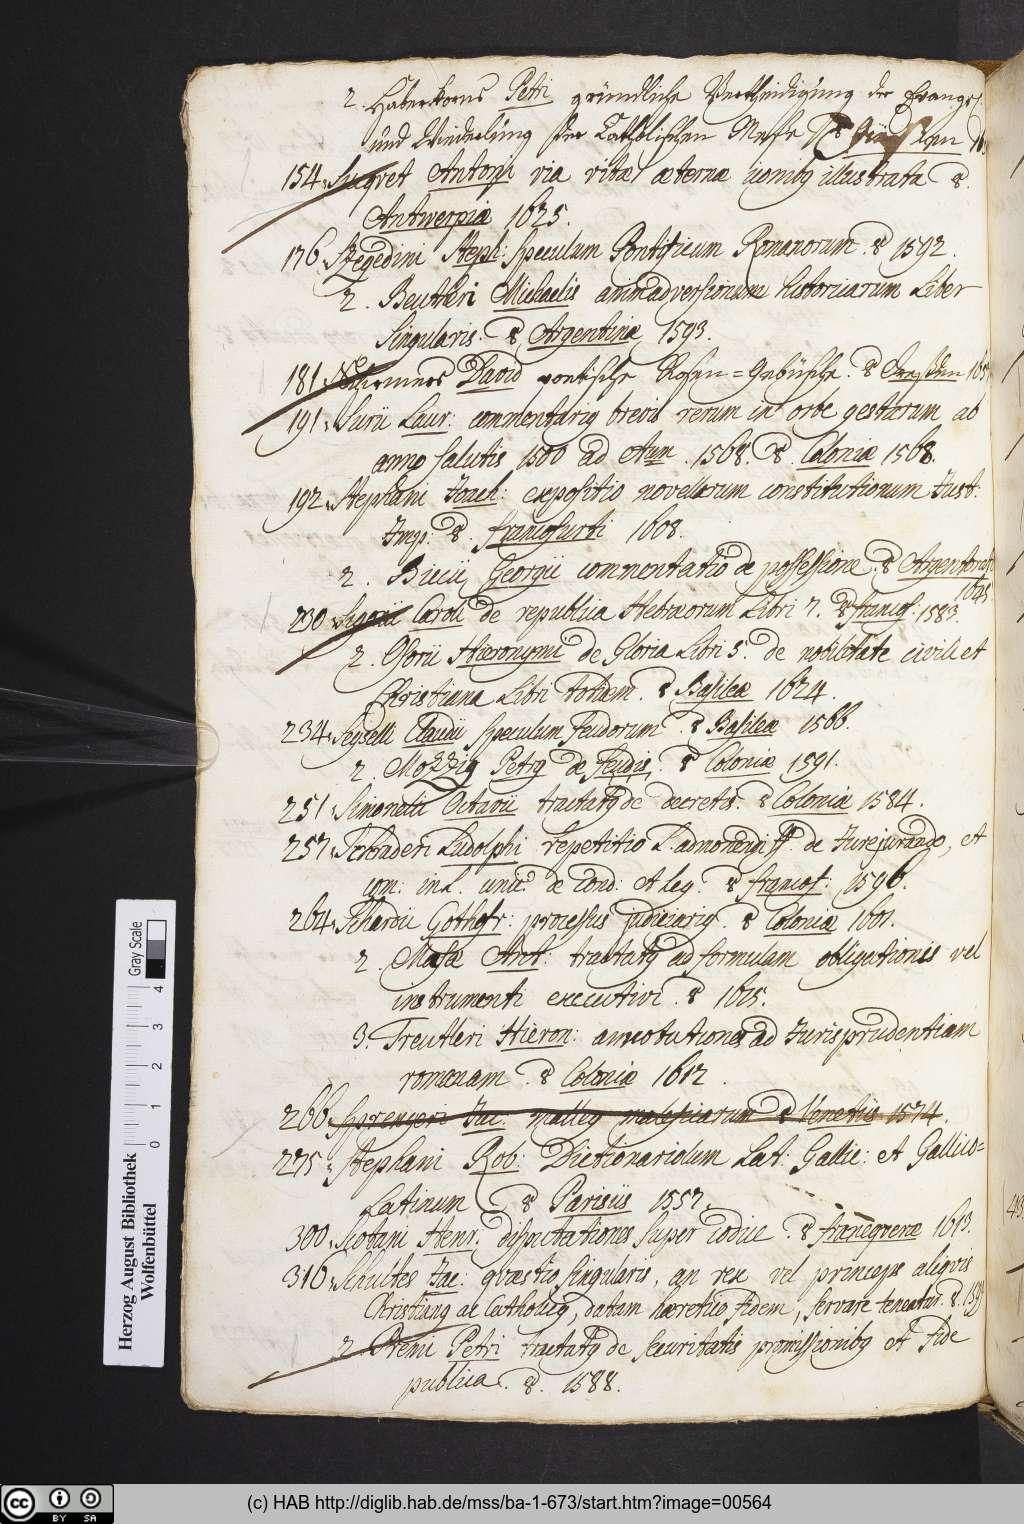 2. Haberkorns Petri gründliche Vertheidigung der Evangel.
und Wiederlegung der Catholischen Messe 8
154. Sucquet Antonij via vitæ æternæ iconibq illustrata 8.
Antwerpiæ 1625.
176. Szegedini Steph: Speculum Pontificum Romanorum. 8 1592.
2. Beutheri Michaelis animadversionum historicarum Liber
Singularis. 8 Argentinæ 1593.
181. Schirmers David poetische Rosen-Gebüsche. 8 Dreßden 165
191. Surii Laur: commentariq brevis rerum in orbe gestarum ab
anno salutis 1500 ad Ann. 1568. 8. Coloniæ 1568.
192. Stephani Joach: expositio novellarum constitutionum Just:
Imp. 8. francofurti 1608.
2. Georgii commentatio de possessione 8 Argentorati
1645
230. Sigonii Caroli de republica Hebræorum Libri 7. 8 francof: 1583.
2. Osorii Hieronymi de Gloria Libri 5. de nobilitate civili et
Christiana Libri totidem. 8 Basileæ 1624.
234. Seyselli Claudii Speculum feudorum. 8 Basileæ 1566.
2. Mozziq Petrq de feudis. 8 Coloniæ 1591.
251. Simoncelli Octavii tractatq de decretis. 8 Coloniæ 1584.
257. Schraderi Ludolphi repetitio L. admonendi ff. de Jurejurando, et
com: in L. unic. de cond: et leg. 8 francof: 1596.
264. Schardii Gothofr: processus judiciariq. 8 Coloniæ 1601.
2. Ant: tractatq ad formulam obligationis vel
instrumenti executivi. 8 1615.
3. Treutleri Hieron: annotationes ad Jurisprudentiam
romanam. 8 Coloniæ 1612.
266. Sprengeri Jac: malleq maleficarum 8 Venetiis 1574.
275. Stephani Rob: Dictionariolum Lat: Gallic: et Gallico-
Latinum 8 Parisiis 1557.
300. Scotani Henr: disputationes super codic. 8 franequeræ 1613.
310. Schultes Jac: qvæstio singularis, an rex vel princeps aliqvis
Christianq ac Catholicq, datam hæretico fidem, servare teneatur. 8.
2. Petri tractatq de securitatis promissionibq et fide
publica. 8. 1588.
Gray Scale
0 1 2 3 4
Herzog August Bibliothek
Wolfenbüttel
cc BY SA
(c) HAB http://diglib.hab.de/mss/ba-1-673/start.htm?image=00564